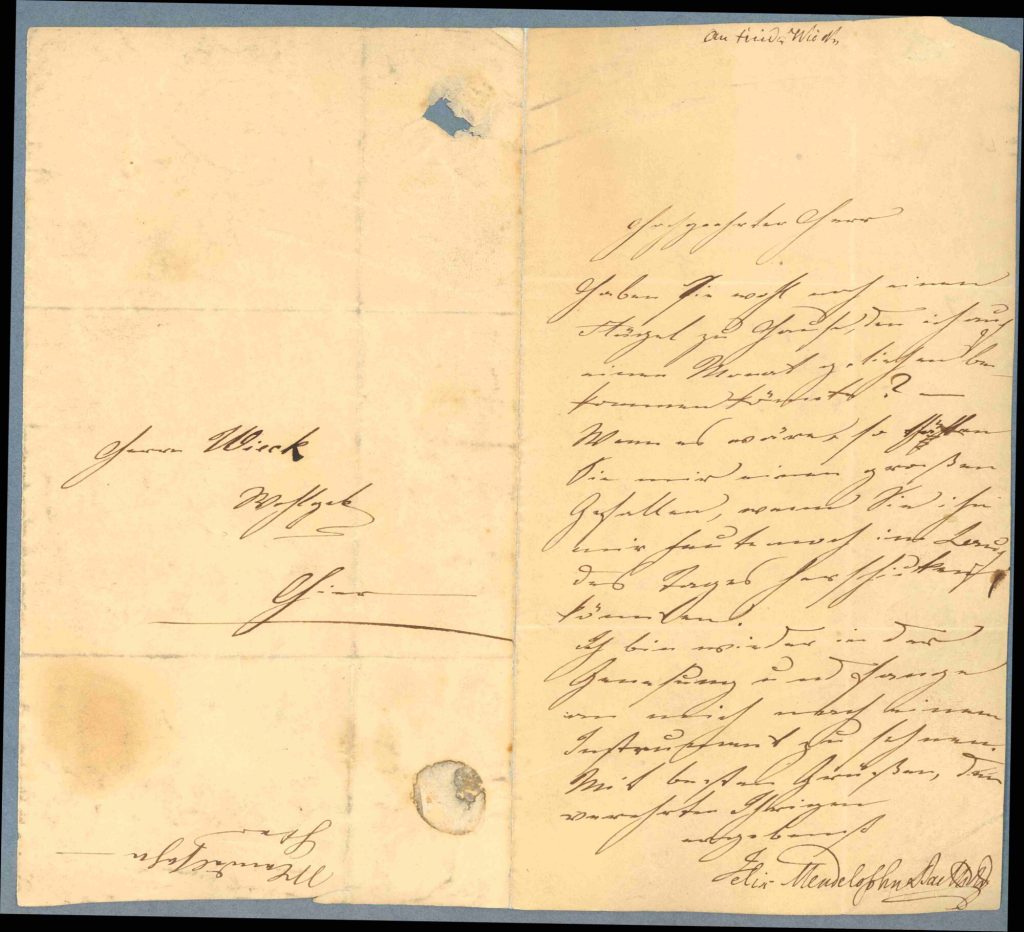 Herrn Wieck
Wohlgeb
Hier
Mendelssohn
An Wieck
Hochgeehrter Herr
Haben Sie wohl noch einen
Flügel zu Hause, den ich auf
einen Monat geliehen be-
kommen könnte? —
Wenn es wäre, so thäten
Sie mir einen großen
Gefallen, wenn Sie ihn
mir heute noch im Lauf
des Tages herschicken
könnten.
Ich bin wieder in der
Genesung und fange
an mich nach einem
Instrument zu sehnen.
Mit besten Grüßen, den
verehrten Ihrigen
ergebenst
Felix Mendelssohn Bartholdy